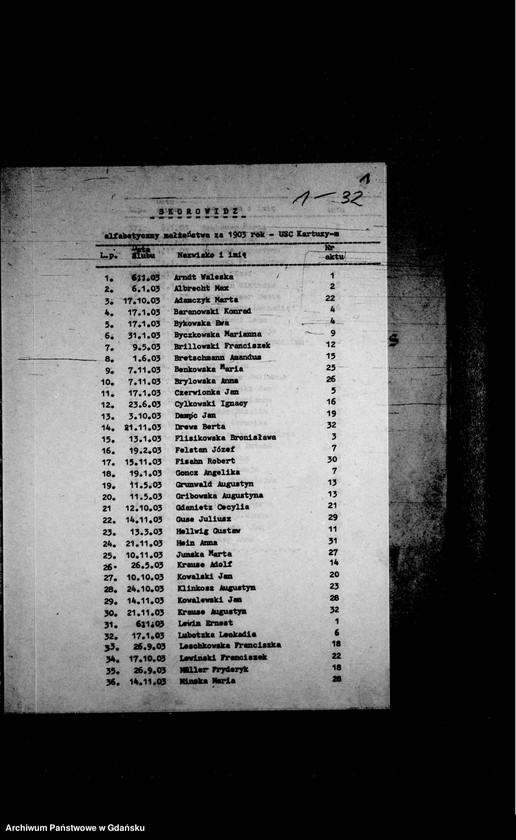 1
1-32
SKOROWIDZ
alfabetyczny małżeństwa za 1903 rok - USC Kartuzy-m
L.p. Data ślubu Nazwisko i imię Nr aktu
1. 6.1.03 Arndt Waleska 1
2. 6.1.03 Albrecht Max 2
3. 17.10.03 Adamczyk Marta 22
4. 17.1.03 Baranowski Konrad 4
5. 17.1.03 Bykowska Ewa 4
6. 31.1.03 Byczkowska Marianna 9
7. 9.5.03 Brillowski Franciszek 12
8. 1.6.03 Bretschmann Amandus 15
9. 7.11.03 Benkowska Maria 25
10. 7.11.03 Brylowska Anna 26
11. 17.1.03 Czerwionka Jan 5
12. 23.6.03 Cylkowski Ignacy 16
13. 3.10.03 Dampc Jan 19
14. 21.11.03 Drews Berta 32
15. 13.1.03 Flisikowska Bronisława 3
16. 19.2.03 Felstan Józef 7
17. 15.11.03 Fisahn Robert 30
18. 19.1.03 Goncz Angelika 7
19. 11.5.03 Grunwald Augustyn 13
20. 11.5.03 Gribowska Augustyna 13
21 12.10.03 Gdanietz Cecylia 21
22. 14.11.03 Guse Juliusz 29
23. 13.3.03 Hellwig Gustaw 11
24. 21.11.03 Hein Anna 31
25. 10.11.03 Junska Marta 27
26. 26.5.03 Krause Adolf 14
27. 10.10.03 Kowalski Jan 20
28. 24.10.03 Klinkosz Augustyn 23
29. 14.11.03 Kowalewski Jan 28
30. 21.11.03 Krause Augustyn 32
31. 6.1.03 Lewin Ernest 1
32. 17.1.03 Lubotzka Leokadia 6
33. 26.9.03 Leschkowska Franciszka 18
34. 17.10.03 Lewinski Franciszek 22
35. 26.9.03 Müller Fryderyk 18
36. 14.11.03 Minska Maria 28
Archiwum Państwowe w Gdańsku